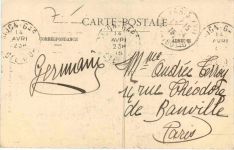 CARTE POSTALE
CORRESPONDANCE
14
AVRI
23H
14
AVRI
23H
Germain
Mme Andrée Terroy
14 rue Théodore
de Banville
Paris